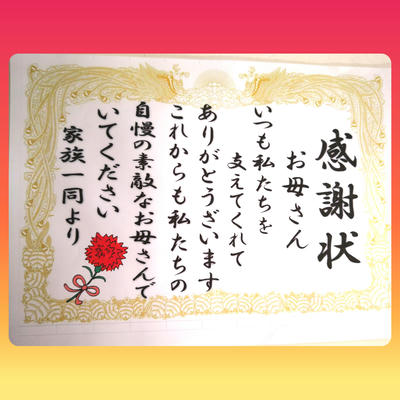 感謝状
お母さん
いつも私たちを
支えてくれて
ありがとうございます
これからも私たちの
自慢の素敵なお母さんで
いてください
家族一同より